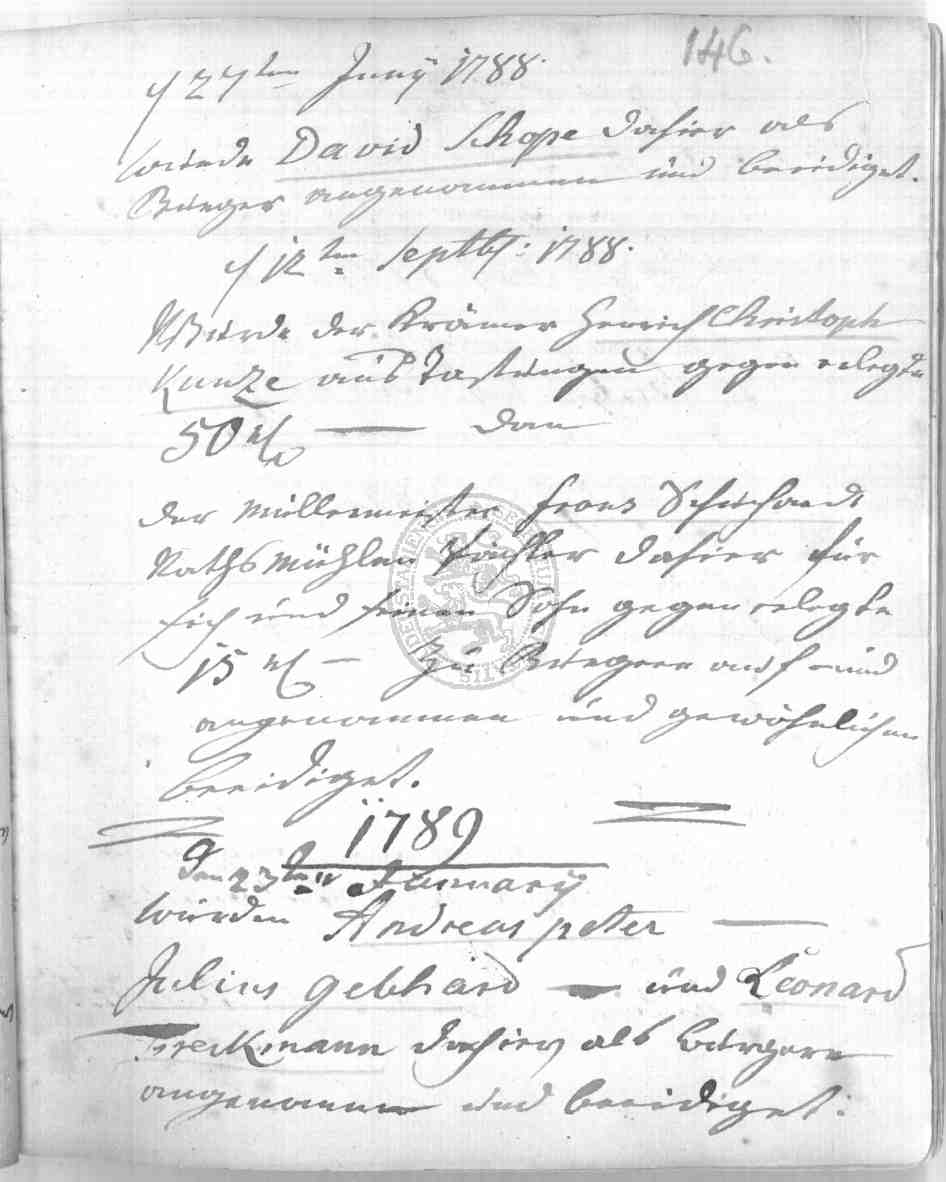 146.
d 27ten Juny 1788.
wurde David Schope dahier als
Bürger angenommen und beeidiget.
d 12ten Septbr: 1788.
Wurde der Krämer Henrich Christoph
Kunze aus gegen erlegte
50 rl — dan
der Müllermeister Frans Schuchardt
Raths Mühlen Pächter dahier für
sich und seinen Sohn gegen erlegte
15 rl — zu Bürgern auf- und
angenommen und gewöhnlichen
beeidiget.
1789
den 23ten January
wurden Andreas peter —
Julius gebhard — und Leonard
dahier als bürgere
angenommen und beeidiget.